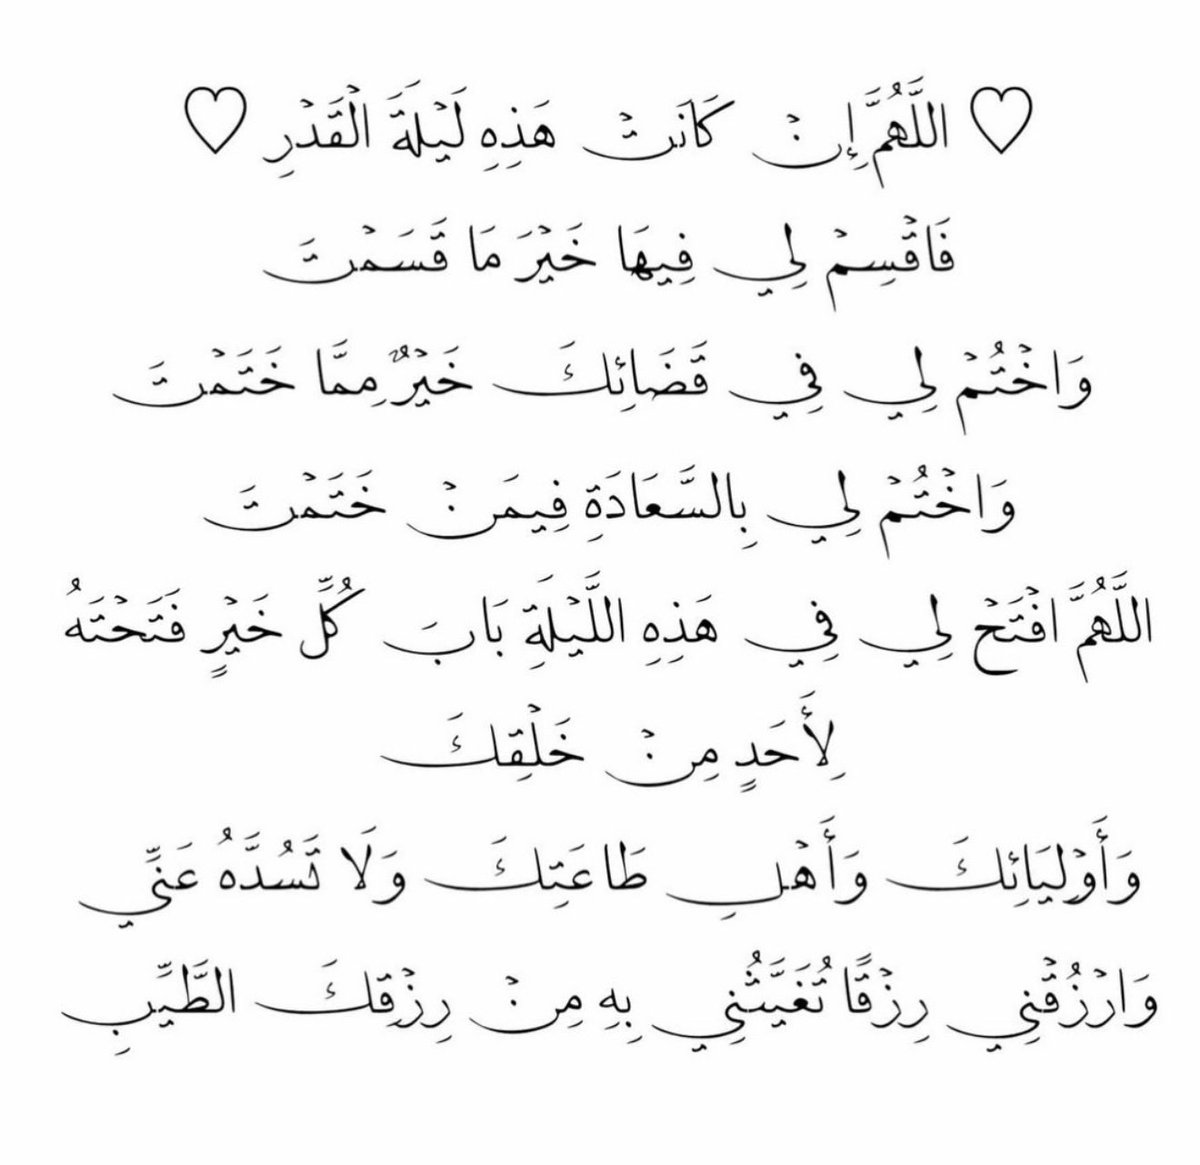 ♡ اللَّهُمَّ إِنْ كَانَتْ هَذِهِ لَيْلَةَ الْقَدْرِ ♡
فَاقْسِمْ لِي فِيهَا خَيْرَ مَا قَسَمْتَ
وَاخْتُمْ لِي فِي قَضَائِكَ خَيْرٌ مِمَّا خَتَمْتَ
وَاخْتُمْ لِي بِالسَّعَادَةِ فِيمَنْ خَتَمْتَ
اللَّهُمَّ افْتَحْ لِي فِي هَذِهِ اللَّيْلَةِ بَابَ كُلِّ خَيْرٍ فَتَحْتَهُ
لِأَحَدٍ مِنْ خَلْقِكَ
وَأَوْلِيَائِكَ وَأَهْلِ طَاعَتِكَ وَلَا تَسُدَّهُ عَنِّي
وَارْزُقْنِي رِزْقًا تُغَيِّثُنِي بِهِ مِنْ رِزْقِكَ الطَّيِّبِ